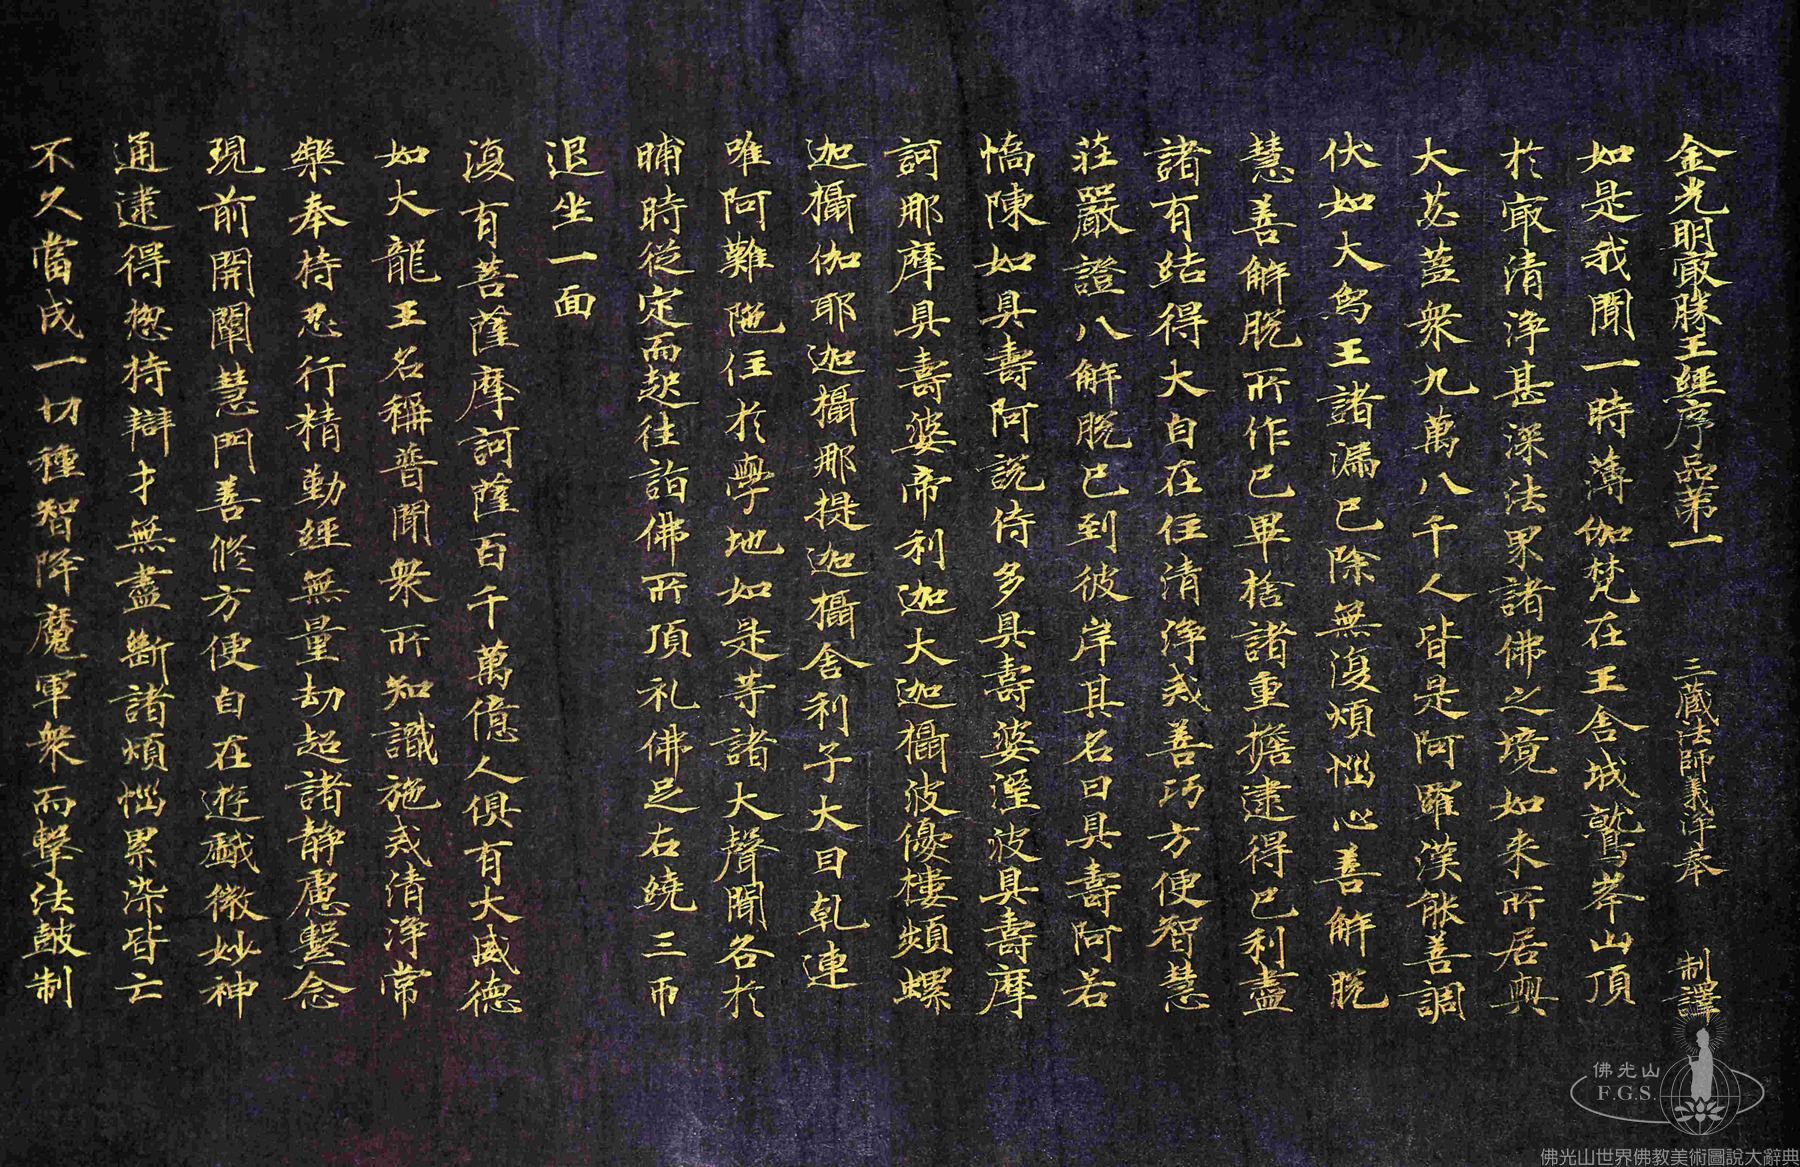 金光明㝡勝王經序品第一 三藏法師義淨奉 制譯
如是我聞一時薄伽梵在王舍城鷲峯山頂
於㝡清淨甚深法界諸佛之境如来所居與
大苾蒭衆九萬八千人皆是阿羅漢能善調
伏如大烏王諸漏已除無復煩惱心善解脫
慧善解脫所作已畢捨諸重擔逮得已利盡
諸有結得大自在住清淨戒善巧方便智慧
莊嚴證八解脫已到彼岸其名曰具壽阿若
憍陳如具壽阿說侍多具壽婆溼波具壽摩
訶那摩具壽婆帝利迦大迦攝彼優樓頻螺
迦攝伽耶迦攝那提迦攝舍利子大目乹連
唯阿難陁住於學地如是等諸大聲聞各於
晡時從定而起往詣佛所頂礼佛足右繞三帀
退坐一面
復有菩薩摩訶薩百千萬億人俱有大威德
如大龍王名稱普聞衆所知識施戒清淨常
樂奉持忍行精勤經無量劫超諸靜慮繫念
現前開闡慧門善修方便自在遊戲微妙神
通逮得揔持辯才無盡斷諸煩惱累染皆亡
不久當成一切種智降魔軍衆而擊法鼓制
佛光山
F.G.S.
佛光山世界佛教美術圖說大辭典